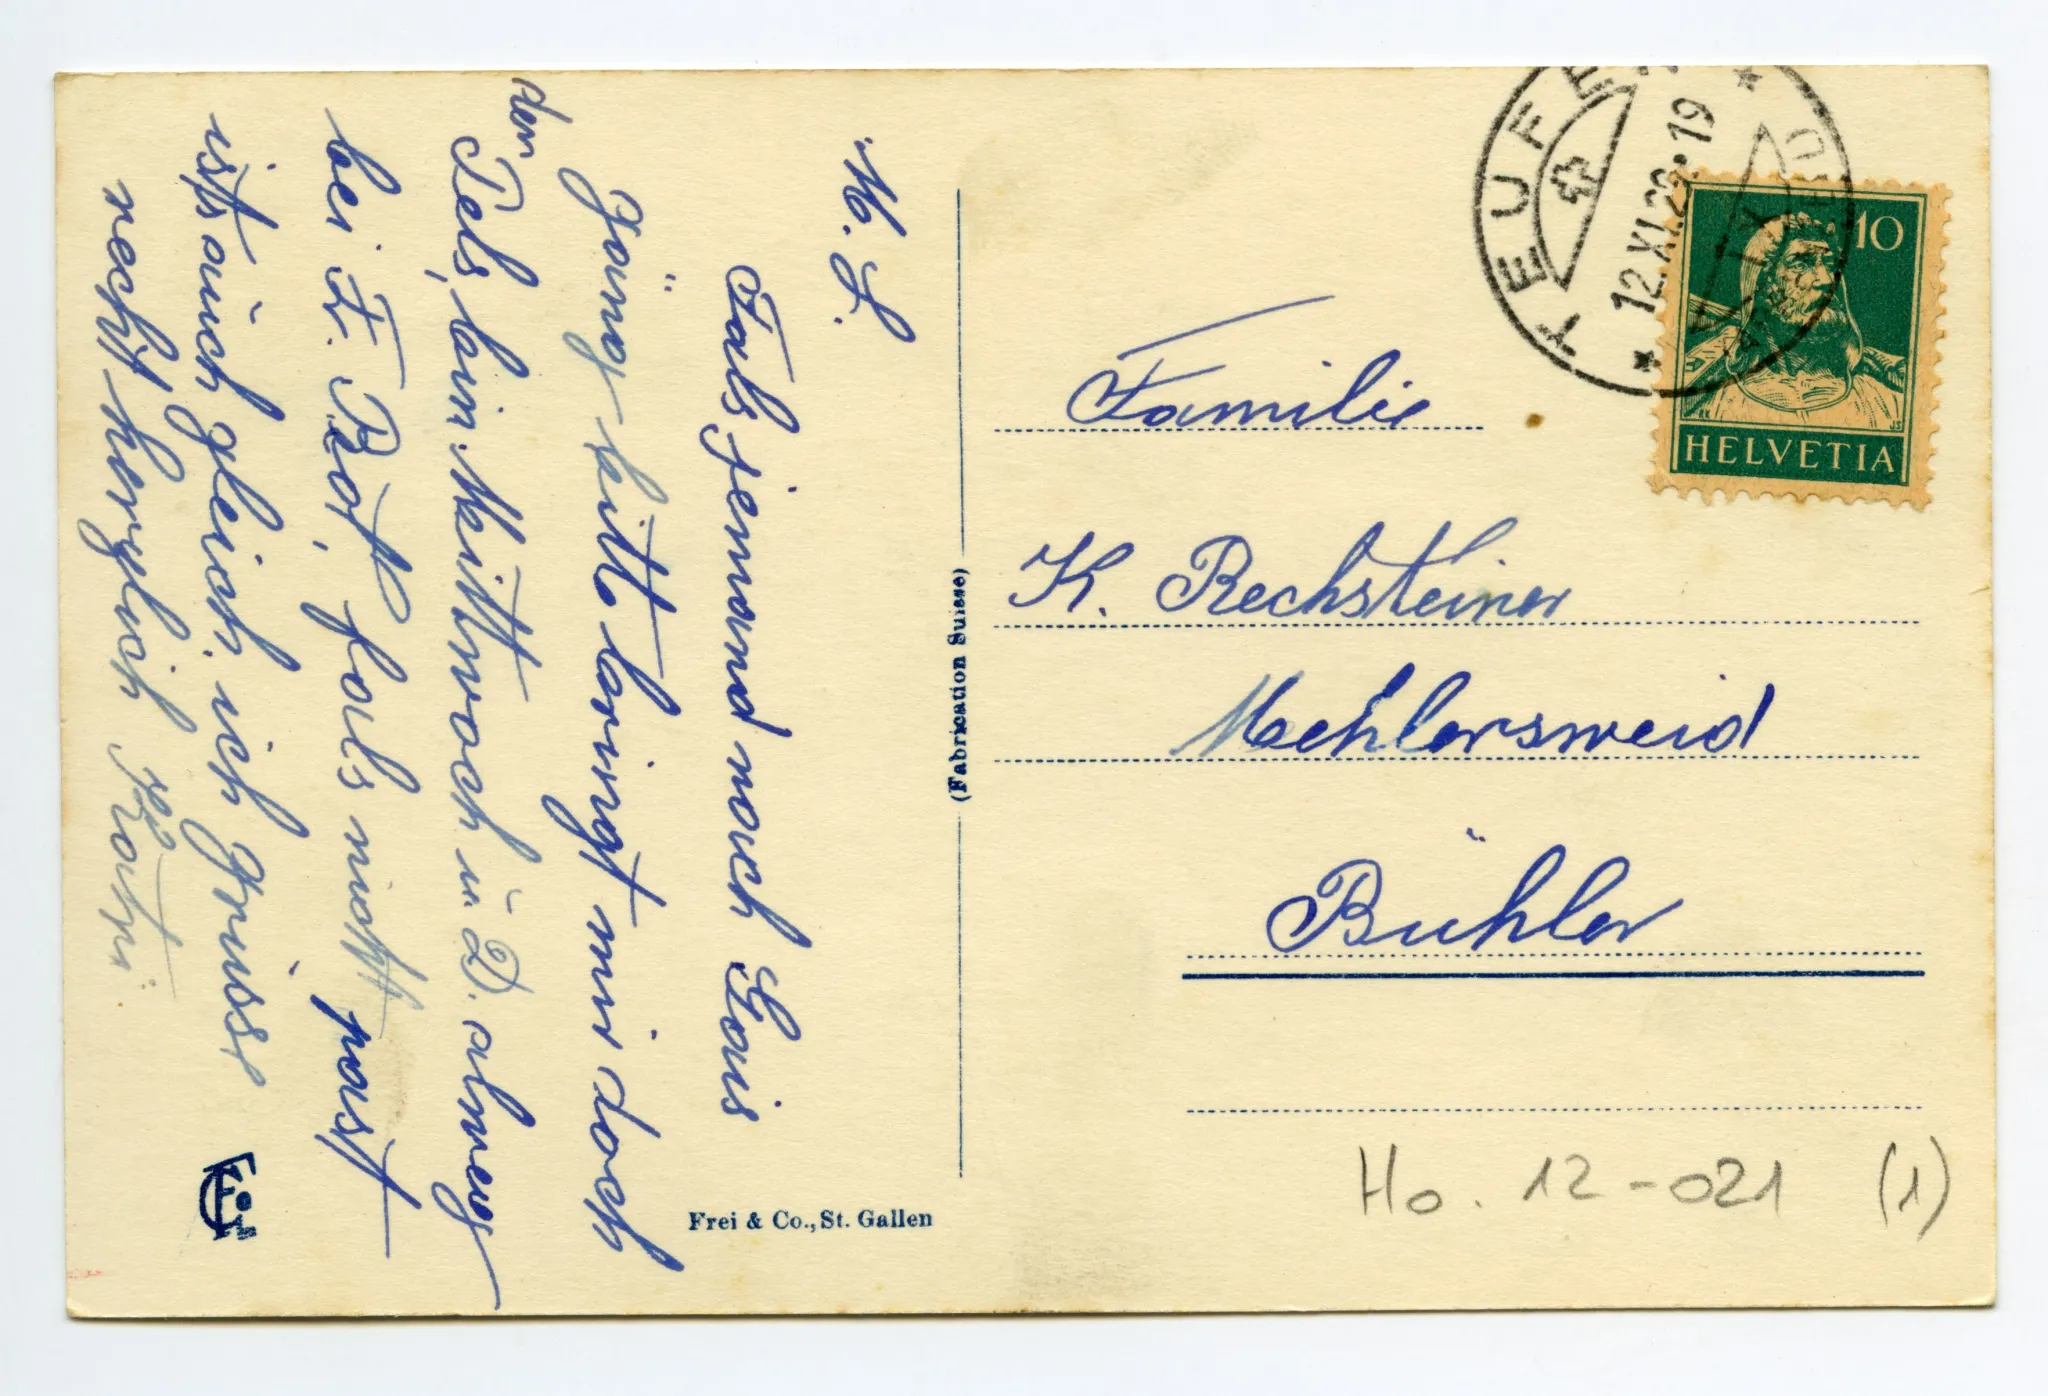 M. L.
Fals jemand nach Gais
gäng bitte bringt mir doch
den Pels, bin Mittwoch u. D. alweg
bei F. , fals nicht past
ists auch gleich, ich Grüsse
recht herzlich Kätri.
(Fabrication Suisse)
Frei & Co., St. Gallen
TEUFEN
12.XI.29.-19
10
HELVETIA
Familie
K. Rechsteiner
Mehlersweid
Bühler
Ho. 12-021 (1)